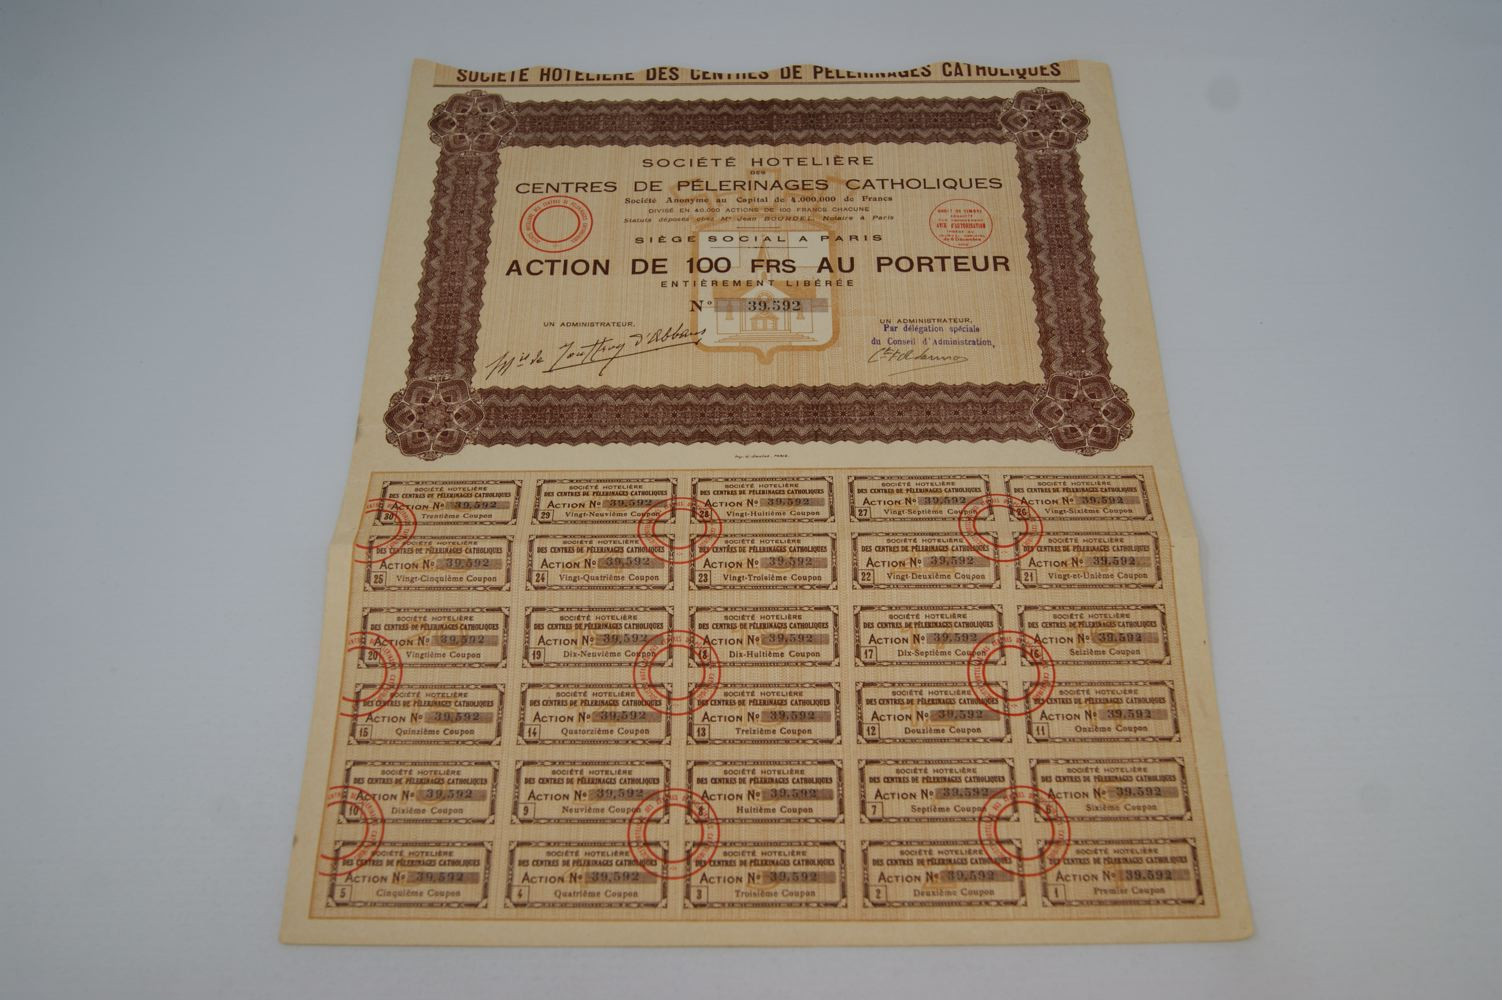 SOCIÉTÉ HOTELIÈRE DES CENTRES DE PÉLERINAGES CATHOLIQUES
SOCIÉTÉ HOTELIÈRE
DES
CENTRES DE PÉLERINAGES CATHOLIQUES
Société Anonyme au Capital de 4.000.000 de Francs
DIVISÉ EN 40.000 ACTIONS DE 100 FRANCS CHACUNE
Statuts déposés chez Me Jean BOURDEL, Notaire à Paris
SIÈGE SOCIAL A PARIS
ACTION DE 100 FRS AU PORTEUR
ENTIÈREMENT LIBÉRÉE
No 39,592
UN ADMINISTRATEUR,
UN ADMINISTRATEUR,
Par délégation spéciale
du Conseil d'Administration,
DROIT DE TIMBRE
AVIS D'AUTORISATION
SOCIÉTÉ HOTELIÈRE
DES CENTRES DE PÉLERINAGES CATHOLIQUES
ACTION No 39,592
30 Trentième Coupon
SOCIÉTÉ HOTELIÈRE
DES CENTRES DE PÉLERINAGES CATHOLIQUES
ACTION No 39,592
29 Vingt-Neuvième Coupon
SOCIÉTÉ HOTELIÈRE
DES CENTRES DE PÉLERINAGES CATHOLIQUES
ACTION No 39,592
28 Vingt-Huitième Coupon
SOCIÉTÉ HOTELIÈRE
DES CENTRES DE PÉLERINAGES CATHOLIQUES
ACTION No 39,592
27 Vingt-Septième Coupon
SOCIÉTÉ HOTELIÈRE
DES CENTRES DE PÉLERINAGES CATHOLIQUES
ACTION No 39,592
26 Vingt-Sixième Coupon
SOCIÉTÉ HOTELIÈRE
DES CENTRES DE PÉLERINAGES CATHOLIQUES
ACTION No 39,592
25 Vingt-Cinquième Coupon
SOCIÉTÉ HOTELIÈRE
DES CENTRES DE PÉLERINAGES CATHOLIQUES
ACTION No 39,592
24 Vingt-Quatrième Coupon
SOCIÉTÉ HOTELIÈRE
DES CENTRES DE PÉLERINAGES CATHOLIQUES
ACTION No 39,592
23 Vingt-Troisième Coupon
SOCIÉTÉ HOTELIÈRE
DES CENTRES DE PÉLERINAGES CATHOLIQUES
ACTION No 39,592
22 Vingt-Deuxième Coupon
SOCIÉTÉ HOTELIÈRE
DES CENTRES DE PÉLERINAGES CATHOLIQUES
ACTION No 39,592
21 Vingt-et-Unième Coupon
SOCIÉTÉ HOTELIÈRE
DES CENTRES DE PÉLERINAGES CATHOLIQUES
ACTION No 39,592
20 Vingtième Coupon
SOCIÉTÉ HOTELIÈRE
DES CENTRES DE PÉLERINAGES CATHOLIQUES
ACTION No 39,592
19 Dix-Neuvième Coupon
SOCIÉTÉ HOTELIÈRE
DES CENTRES DE PÉLERINAGES CATHOLIQUES
ACTION No 39,592
18 Dix-Huitième Coupon
SOCIÉTÉ HOTELIÈRE
DES CENTRES DE PÉLERINAGES CATHOLIQUES
ACTION No 39,592
17 Dix-Septième Coupon
SOCIÉTÉ HOTELIÈRE
DES CENTRES DE PÉLERINAGES CATHOLIQUES
ACTION No 39,592
16 Seizième Coupon
SOCIÉTÉ HOTELIÈRE
DES CENTRES DE PÉLERINAGES CATHOLIQUES
ACTION No 39,592
15 Quinzième Coupon
SOCIÉTÉ HOTELIÈRE
DES CENTRES DE PÉLERINAGES CATHOLIQUES
ACTION No 39,592
14 Quatorzième Coupon
SOCIÉTÉ HOTELIÈRE
DES CENTRES DE PÉLERINAGES CATHOLIQUES
ACTION No 39,592
13 Treizième Coupon
SOCIÉTÉ HOTELIÈRE
DES CENTRES DE PÉLERINAGES CATHOLIQUES
ACTION No 39,592
12 Douzième Coupon
SOCIÉTÉ HOTELIÈRE
DES CENTRES DE PÉLERINAGES CATHOLIQUES
ACTION No 39,592
11 Onzième Coupon
SOCIÉTÉ HOTELIÈRE
DES CENTRES DE PÉLERINAGES CATHOLIQUES
ACTION No 39,592
10 Dixième Coupon
SOCIÉTÉ HOTELIÈRE
DES CENTRES DE PÉLERINAGES CATHOLIQUES
ACTION No 39,592
9 Neuvième Coupon
SOCIÉTÉ HOTELIÈRE
DES CENTRES DE PÉLERINAGES CATHOLIQUES
ACTION No 39,592
8 Huitième Coupon
SOCIÉTÉ HOTELIÈRE
DES CENTRES DE PÉLERINAGES CATHOLIQUES
ACTION No 39,592
7 Septième Coupon
SOCIÉTÉ HOTELIÈRE
DES CENTRES DE PÉLERINAGES CATHOLIQUES
ACTION No 39,592
Sixième Coupon
SOCIÉTÉ HOTELIÈRE
DES CENTRES DE PÉLERINAGES CATHOLIQUES
ACTION No 39,592
5 Cinquième Coupon
SOCIÉTÉ HOTELIÈRE
DES CENTRES DE PÉLERINAGES CATHOLIQUES
ACTION No 39,592
4 Quatrième Coupon
SOCIÉTÉ HOTELIÈRE
DES CENTRES DE PÉLERINAGES CATHOLIQUES
ACTION No 39,592
3 Troisième Coupon
SOCIÉTÉ HOTELIÈRE
DES CENTRES DE PÉLERINAGES CATHOLIQUES
ACTION No 39,592
2 Deuxième Coupon
SOCIÉTÉ HOTELIÈRE
DES CENTRES DE PÉLERINAGES CATHOLIQUES
ACTION No 39,592
1 Premier Coupon